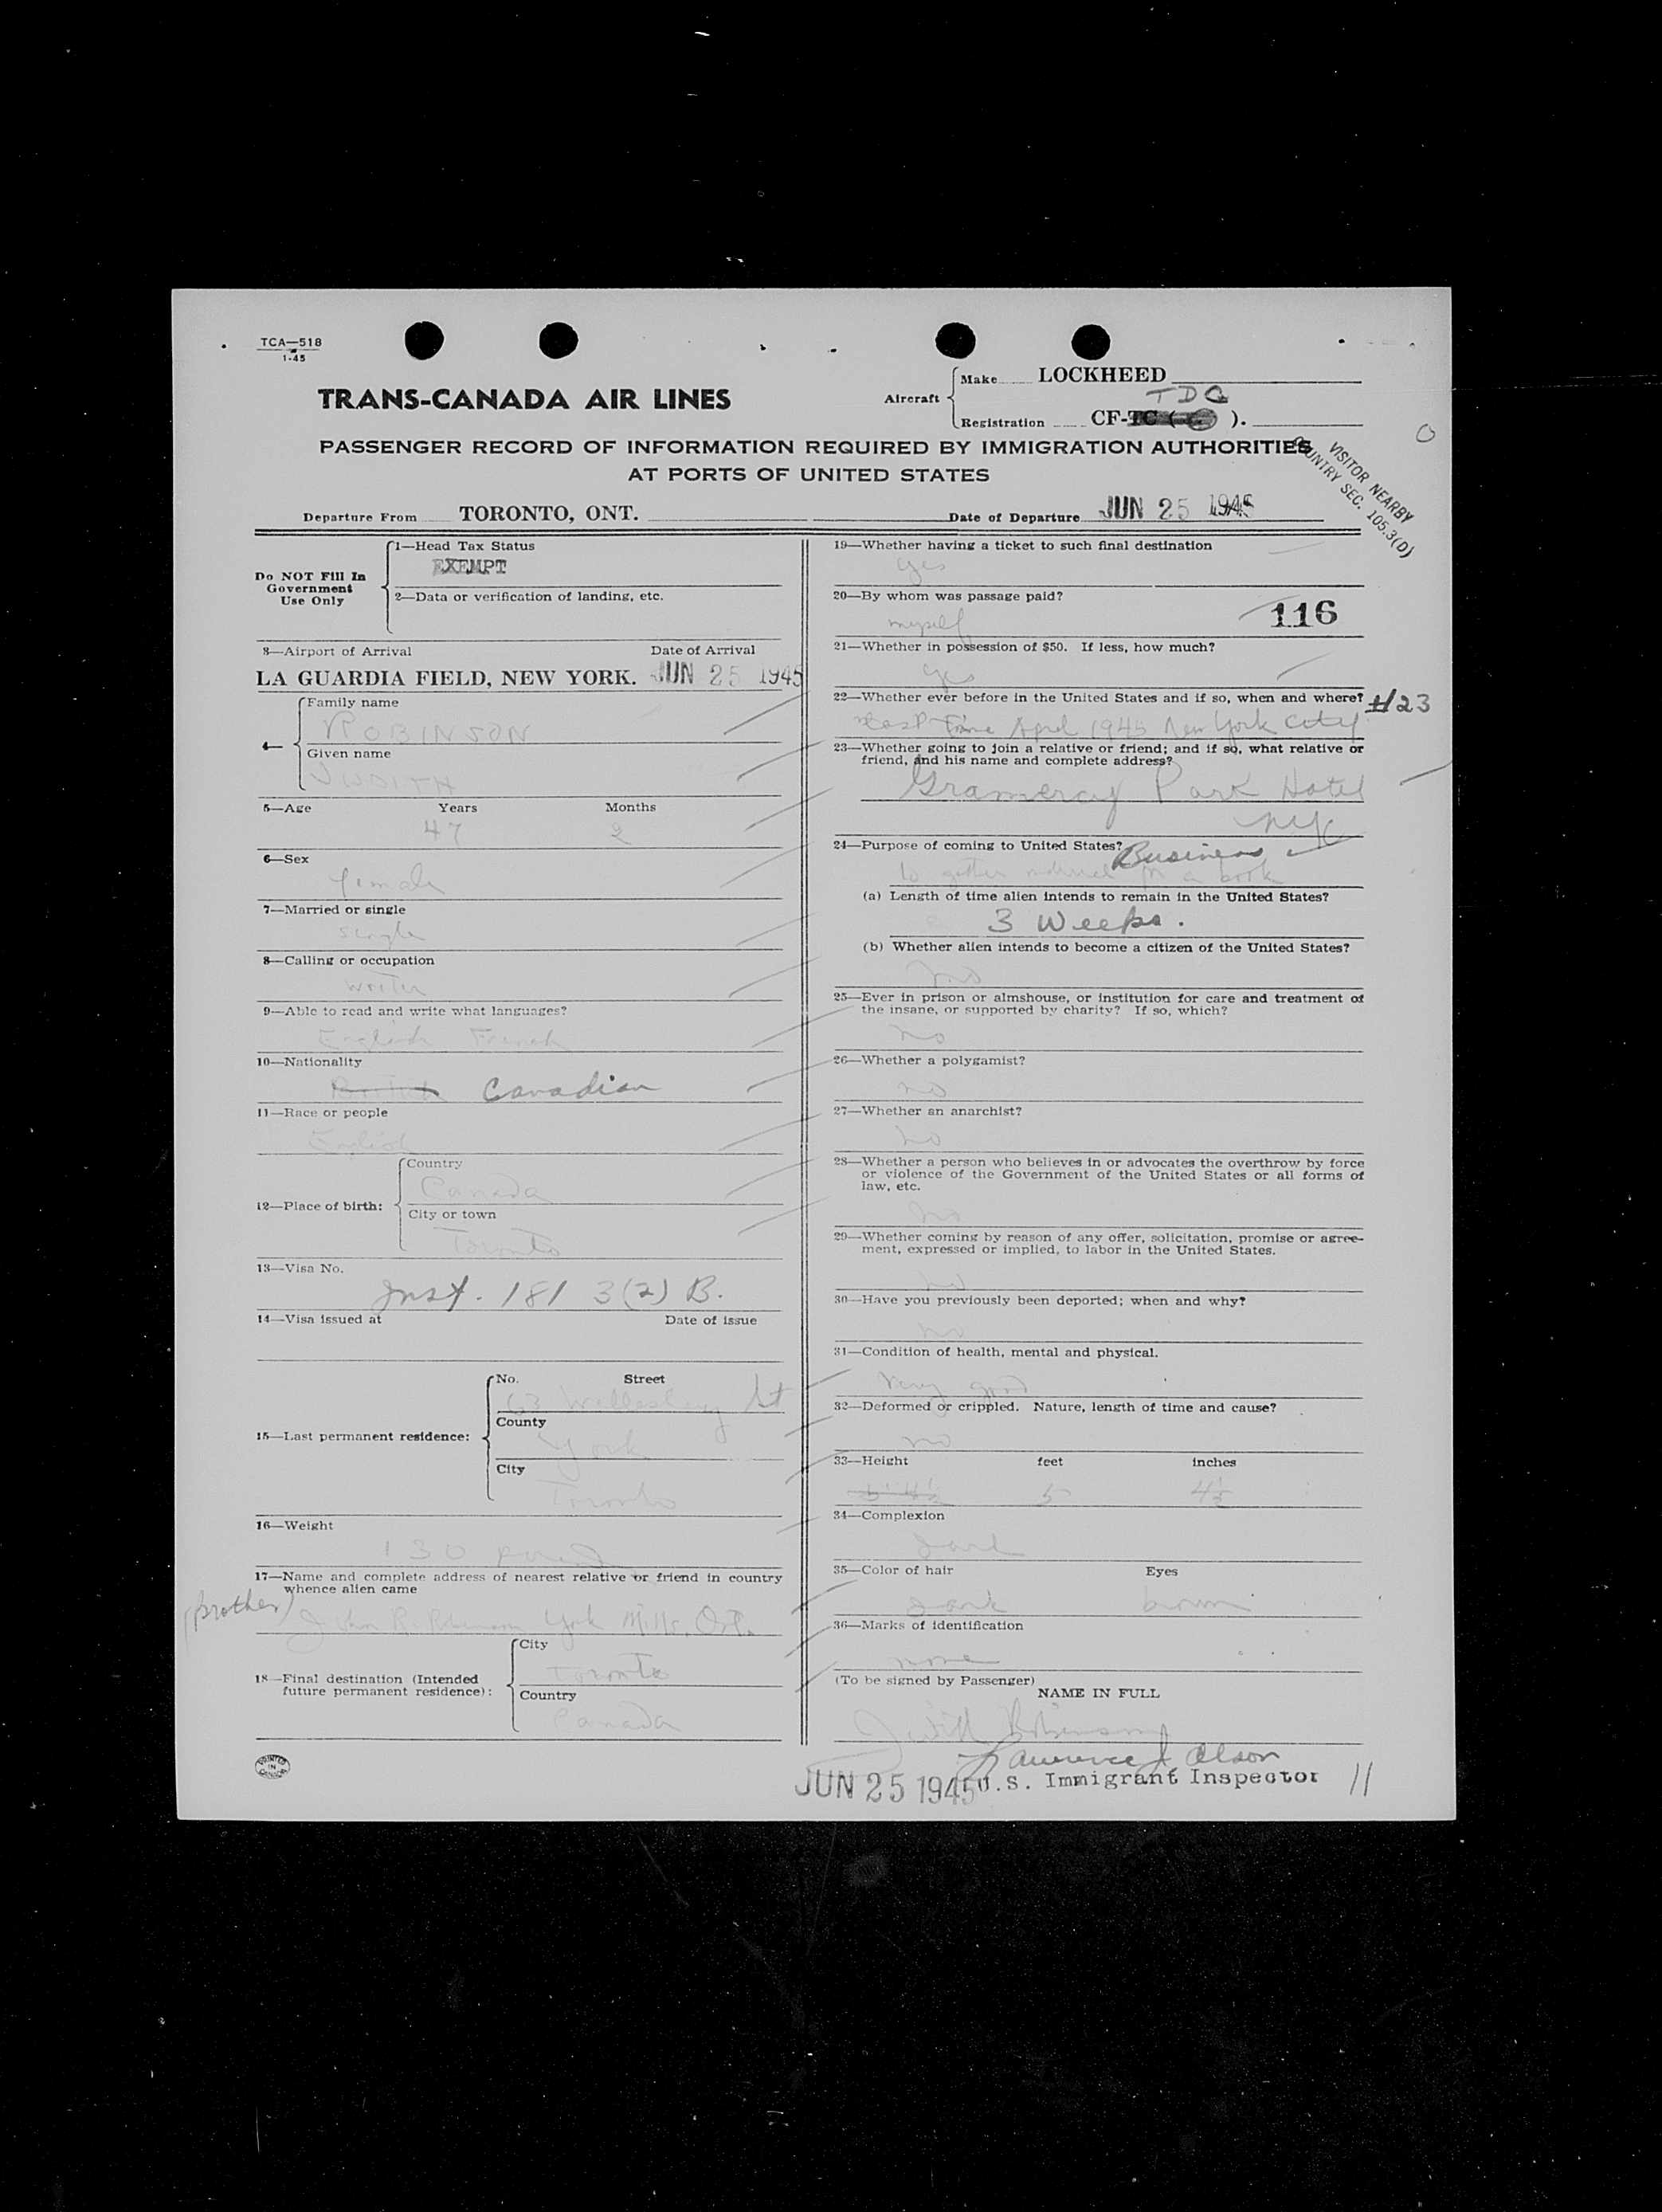 TCA—518
1-45
TRANS-CANADA AIR LINES
Aircraft
Make LOCKHEED
TDC
Registration CF-TC ( ).
PASSENGER RECORD OF INFORMATION REQUIRED BY IMMIGRATION AUTHORITIES
AT PORTS OF UNITED STATES
VISITOR NEARBY
COUNTRY SEC. 105.3(D)
Departure From TORONTO, ONT.
Date of Departure JUN 25 1945
Do NOT Fill In
Government
Use Only
1—Head Tax Status
EXEMPT
2—Data or verification of landing, etc.
3—Airport of Arrival Date of Arrival
LA GUARDIA FIELD, NEW YORK. JUN 25 1945
4—
Family name
ROBINSON
Given name
JUDITH
5—Age Years Months
47 2
6—Sex
female
7—Married or single
single
8—Calling or occupation
writer
9—Able to read and write what languages?
English French
10—Nationality
British Canadian
11—Race or people
English
12—Place of birth:
Country
Canada
City or town
Toronto
13—Visa No.
Inst. 181 3(2) B.
14—Visa issued at Date of issue
15—Last permanent residence:
No. Street
63 Wellesley St
County
York
City
Toronto
16—Weight
130 pounds
17—Name and complete address of nearest relative or friend in country
whence alien came
(Brother)
John R. Robinson York Mills, Ont.
18—Final destination (Intended
future permanent residence):
City
Toronto
Country
Canada
PRINTED
IN
CANADA
19—Whether having a ticket to such final destination
yes
20—By whom was passage paid?
myself
116
21—Whether in possession of $50. If less, how much?
yes
22—Whether ever before in the United States and if so, when and where?
#23
last time April 1945 New York City
23—Whether going to join a relative or friend; and if so, what relative or
friend, and his name and complete address?
Gramercy Park Hotel
NYC
24—Purpose of coming to United States?
Business
to gather material for a book
(a) Length of time alien intends to remain in the United States?
3 Weeks.
(b) Whether alien intends to become a citizen of the United States?
no
25—Ever in prison or almshouse, or institution for care and treatment of
the insane, or supported by charity? If so, which?
no
26—Whether a polygamist?
no
27—Whether an anarchist?
no
28—Whether a person who believes in or advocates the overthrow by force
or violence of the Government of the United States or all forms of
law, etc.
no
29—Whether coming by reason of any offer, solicitation, promise or agree-
ment, expressed or implied, to labor in the United States.
no
30—Have you previously been deported; when and why?
no
31—Condition of health, mental and physical.
Very good
32—Deformed or crippled. Nature, length of time and cause?
no
33—Height feet inches
5' 4½ 5 4½
34—Complexion
dark
35—Color of hair Eyes
dark brown
36—Marks of identification
none
(To be signed by Passenger)
NAME IN FULL
Judith Robinson
Lawrence J. Olson
JUN 25 1945 U.S. Immigrant Inspector 11